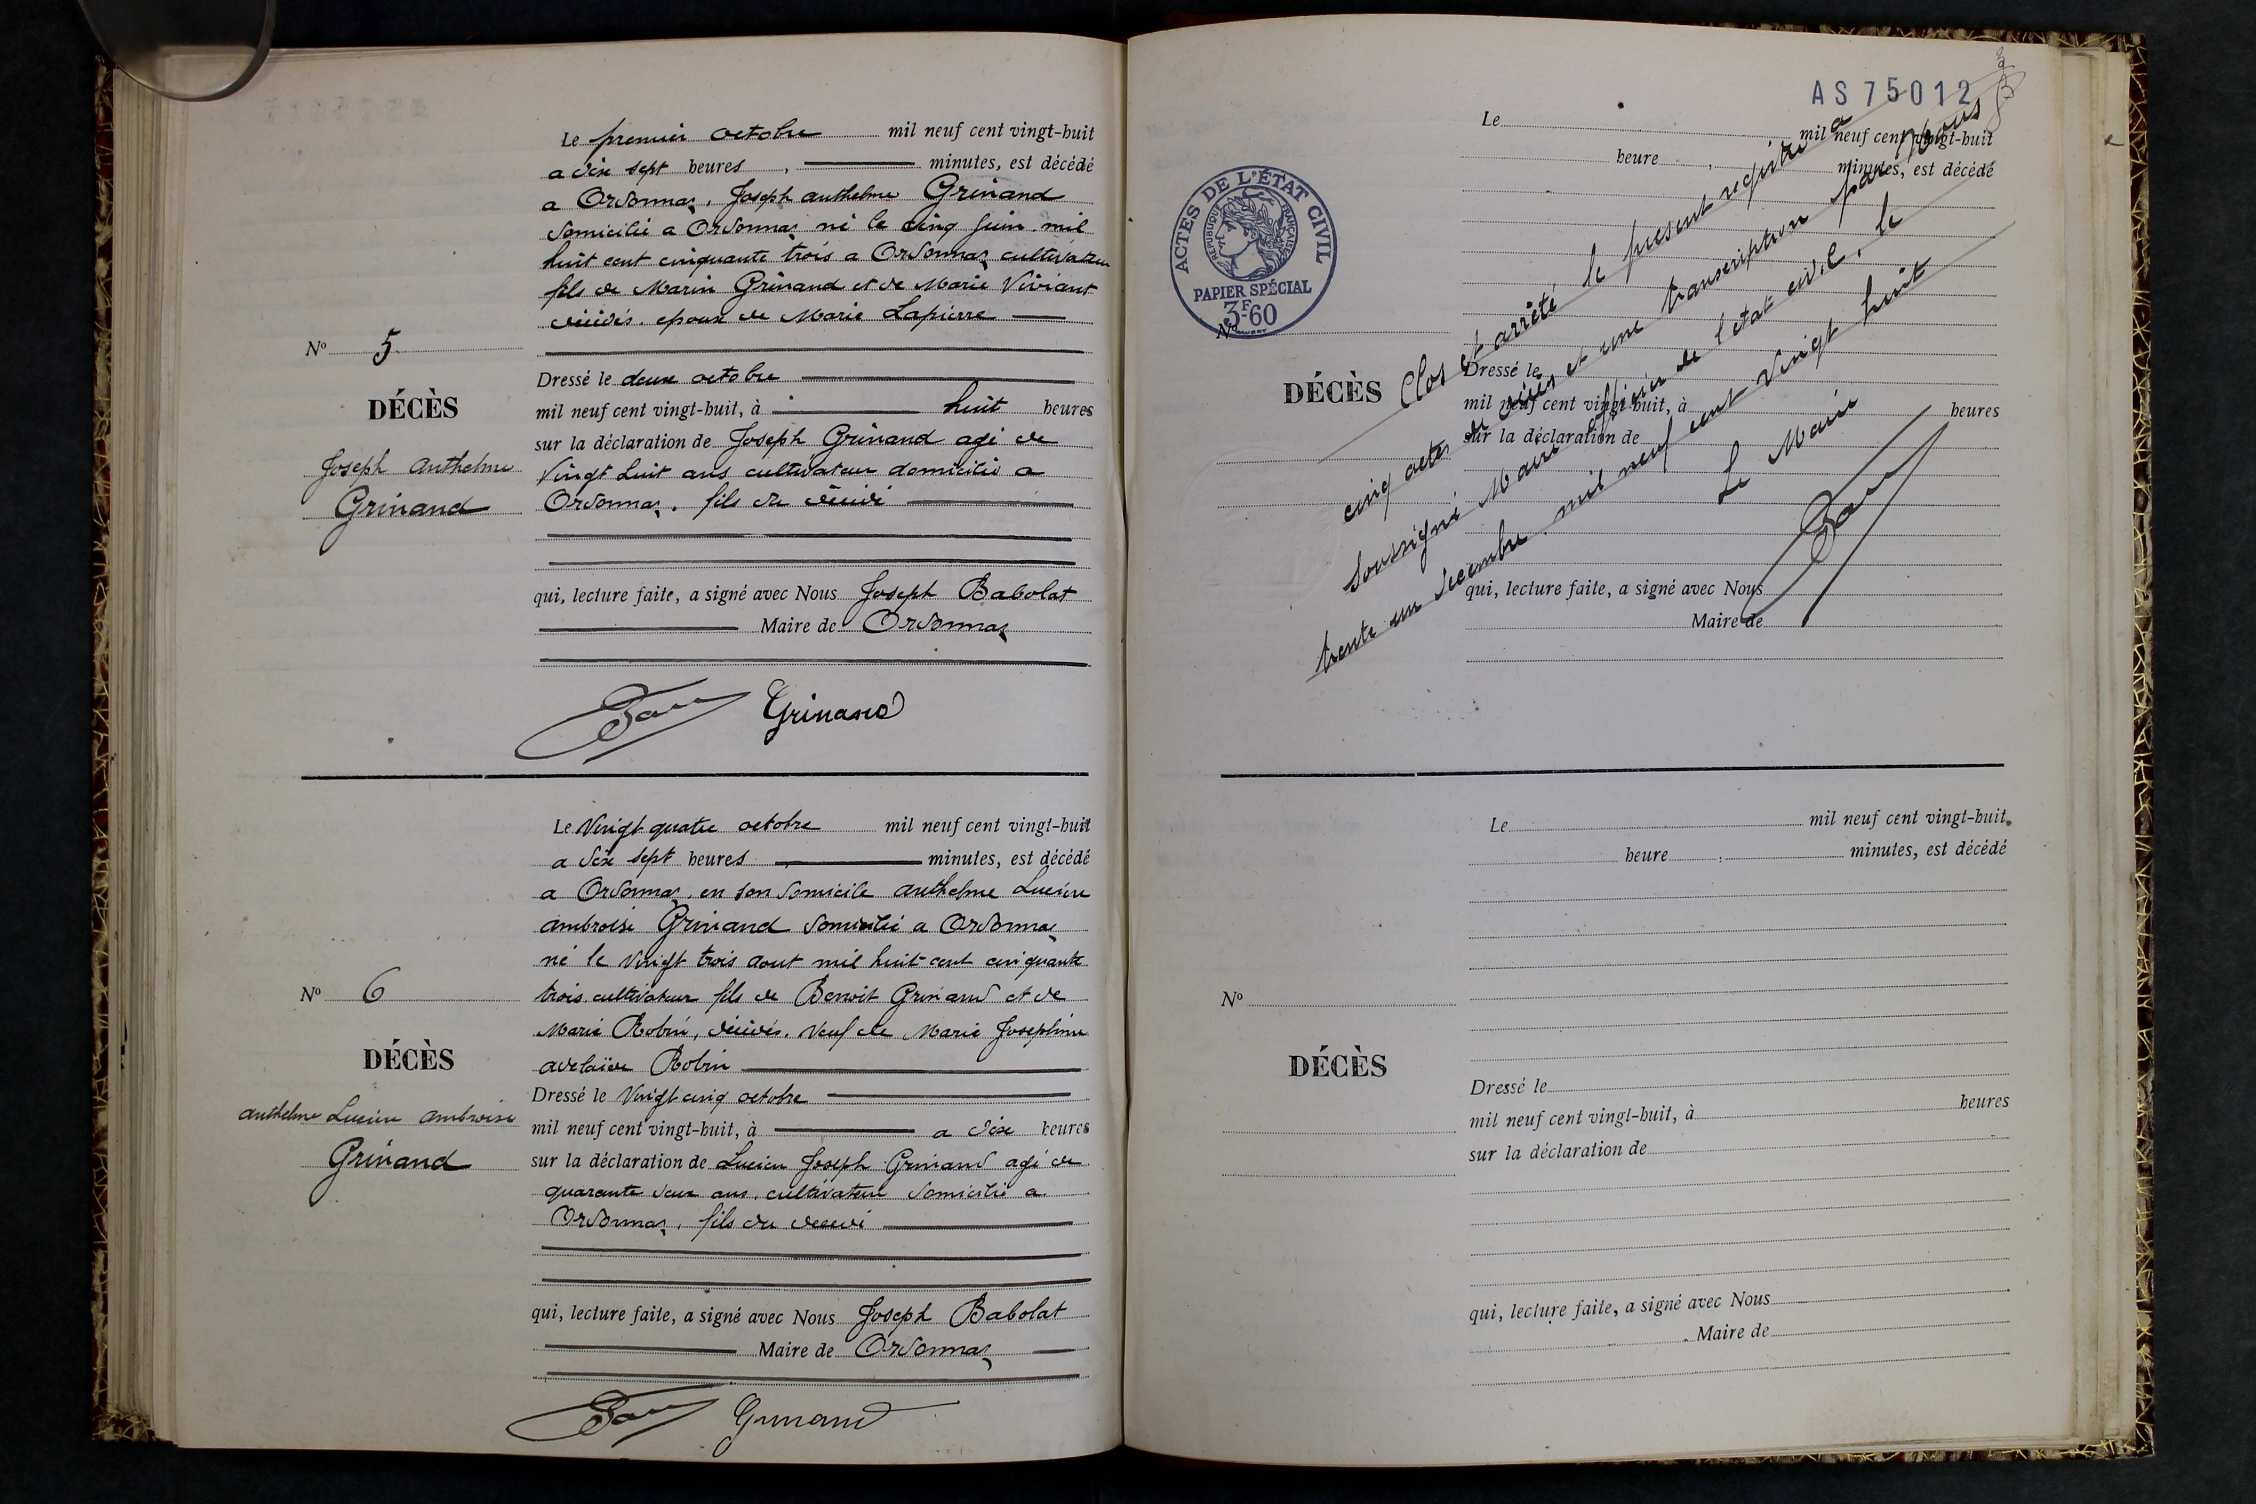 Le premier octobre mil neuf cent vingt-huit
a dix sept heures, minutes, est décédé
a Ordonnaz, Joseph anthelme Grinand
domicilié a Ordonnaz né le cinq juin mil
huit cent cinquante trois a Ordonnaz cultivateur
fils de Marin Grinand et de Marie Viviant
décédés. epoux de Marie Lapierre
Nº 5
DÉCÈS
Joseph Anthelme
Grinand
Dressé le deux octobre
mil neuf cent vingt-huit, à huit heures
sur la déclaration de Joseph Grinand agé de
Vingt huit ans cultivateur domicilié a
Ordonnaz. fils du décédé
qui, lecture faite, a signé avec Nous Joseph Babolat
Maire de Ordonnaz
Grinand
Le Vingt quatre octobre mil neuf cent vingt-huit
a dix sept heures, minutes, est décédé
a Ordonnaz, en son domicile anthelme Lucien
ambroise Grinand domicilié a Ordonnaz
né le vingt trois aout mil huit cent cinquante
trois cultivateur fils de Benoit Grinand et de
Marie Robin, décédés. Veuf de Marie Josephine
adelaïde Robin
Nº 6
DÉCÈS
anthelme Lucien ambroise
Grinand
Dressé le Vingt cinq octobre
mil neuf cent vingt-huit, à a dix heures
sur la déclaration de Lucien Joseph Grinand agé de
quarante deux ans, cultivateur domicilié a
Ordonnaz, fils du décédé
qui, lecture faite, a signé avec Nous Joseph Babolat
Maire de Ordonnaz
Grinand
AS 75012
ACTES DE L'ÉTAT CIVIL
RÉPUBLIQUE FRANÇAISE
PAPIER SPÉCIAL
3F60
Le mil neuf cent vingt-huit
heure, minutes, est décédé
Nº
DÉCÈS
Dressé le
mil neuf cent vingt-huit, à heures
sur la déclaration de
qui, lecture faite, a signé avec Nous
Maire de
Clos et arrêté le present registre a
cinq actes de décès et une transcription par Nous
soussigné Maire officier de l'état civil, le
trente un decembre mil neuf cent vingt huit
Le Maire
Le mil neuf cent vingt-huit
heure, minutes, est décédé
Nº
DÉCÈS
Dressé le
mil neuf cent vingt-huit, à heures
sur la déclaration de
qui, lecture faite, a signé avec Nous
Maire de